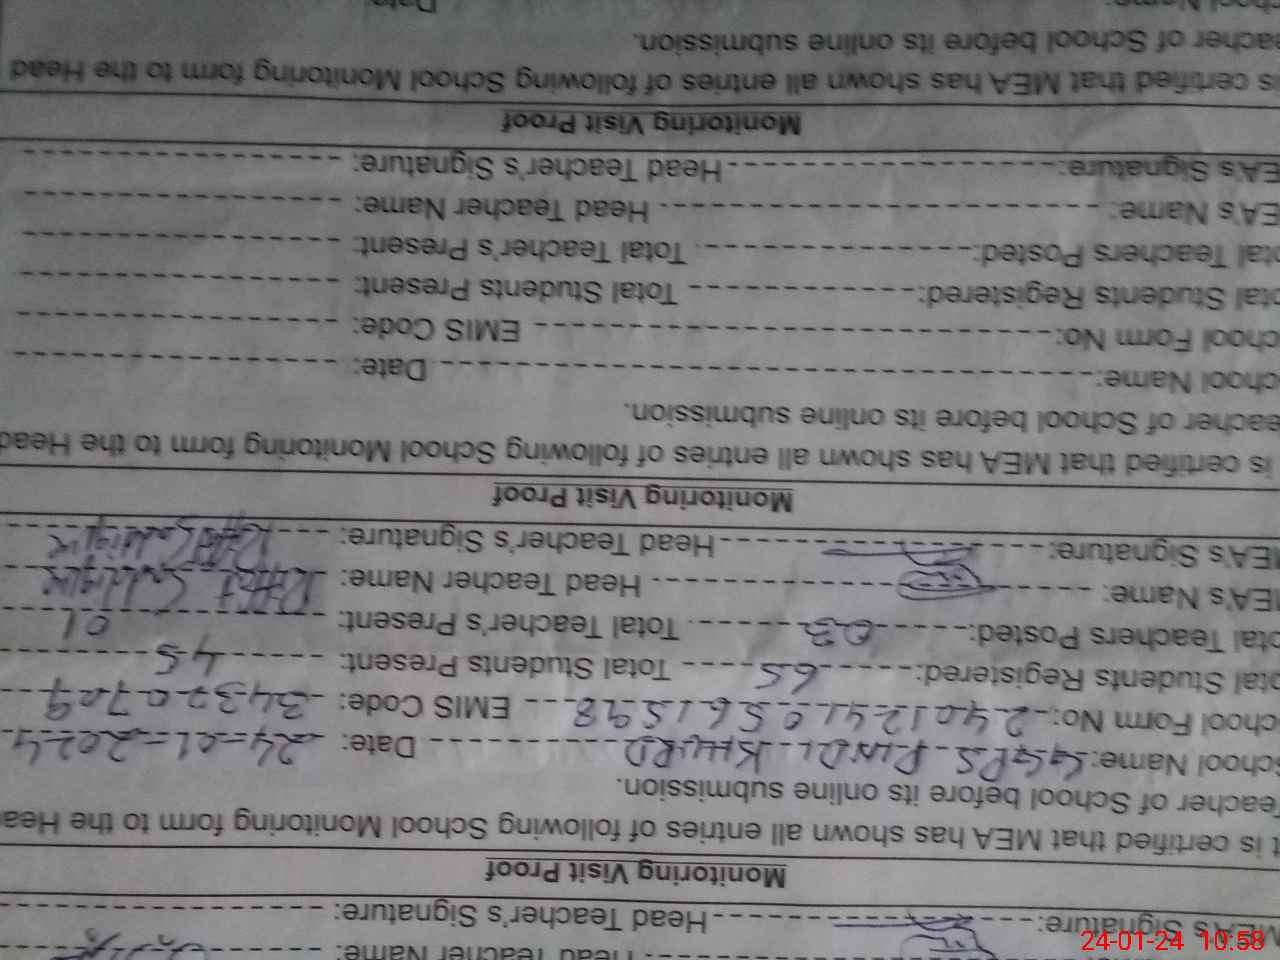 Head Teacher Name:
MEA's Signature: Head Teacher's Signature:
Monitoring Visit Proof
It is certified that MEA has shown all entries of following of following School Monitoring form to the Head
Teacher of School before its online submission.
School Name: GGPS PINDI KHURD Date: 24-01-2024
School Form No: 24012410561598 EMIS Code:
Total Students Registered: 65 Total Students Present: 45
Total Teachers Posted: 03 Total Teacher's Present: 01
MEA's Name: Head Teacher Name: Riffat
MEA's Signature: Head Teacher's Signature: Riffat
Monitoring Visit Proof
is certified that MEA has shown all entries of following of following School Monitoring form to the Head
Teacher of School before its online submission.
School Name: Date:
School Form No: EMIS Code:
Total Students Registered: Total Students Present:
Total Teachers Posted: Total Teacher's Present:
MEA's Name: Head Teacher Name:
MEA's Signature: Head Teacher's Signature:
Monitoring Visit Proof
is certified that MEA has shown all entries of following of following School Monitoring form to the Head
Teacher of School before its online submission.
School Name: Date:
24-01-24 10:58